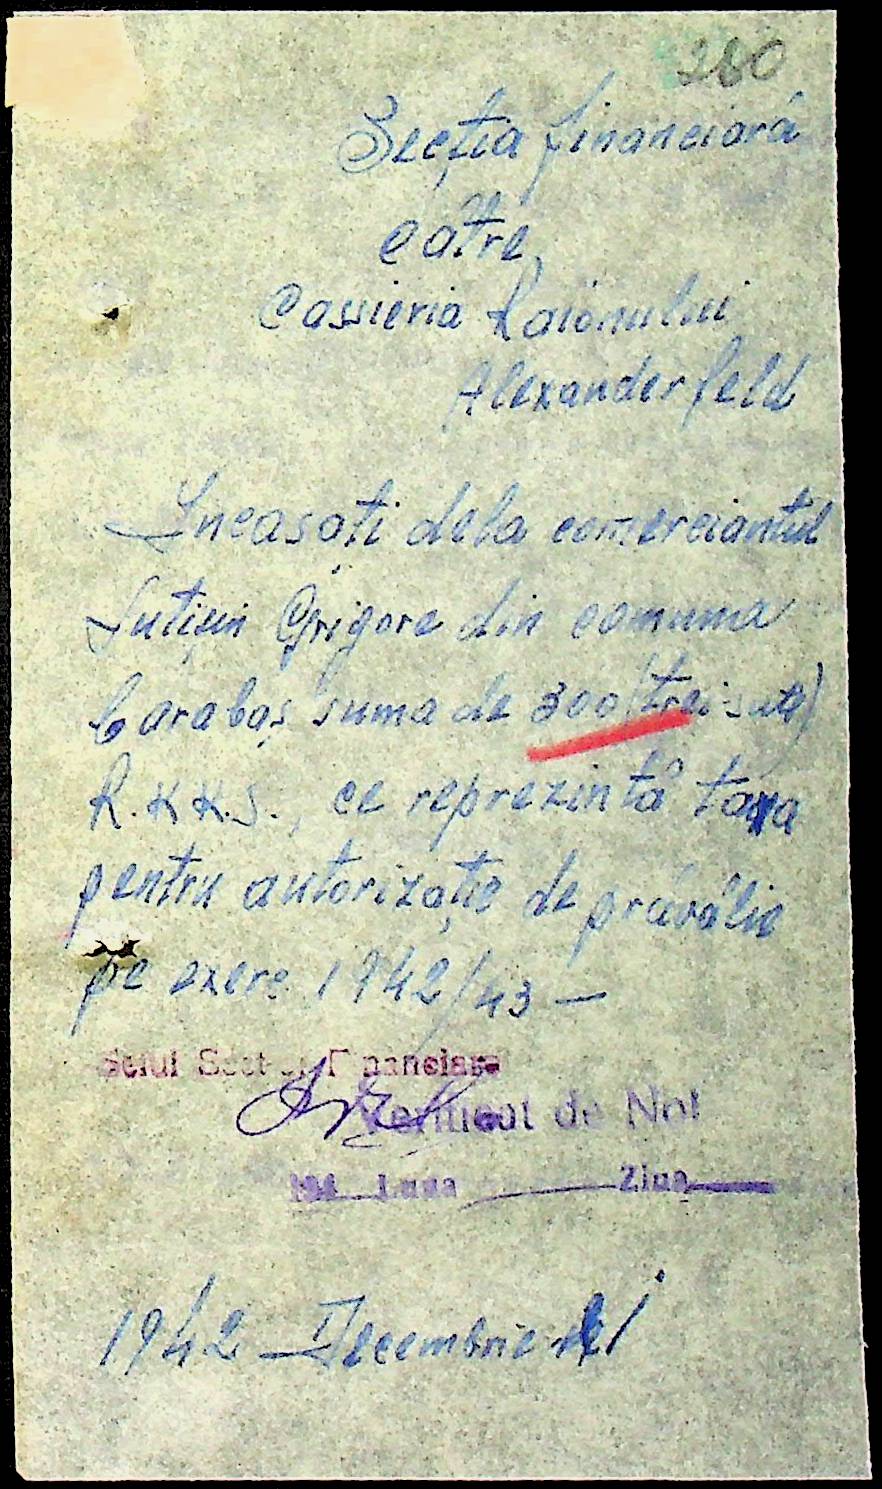 280
Secția financiară
Cátre,
Cassieria Raionului
Alexanderfeld
Incasați dela comerciantul
Grigore din comuna
Carabaș suma de 300 (trei sute)
R.K.K.S., ce reprezintă taxa
pentru autorizație de prăvălie
pe exerc 1942/43 —
Șeful Secției Financiare
Verificat de Noi
194 Luna Ziua
1942 Decembrie